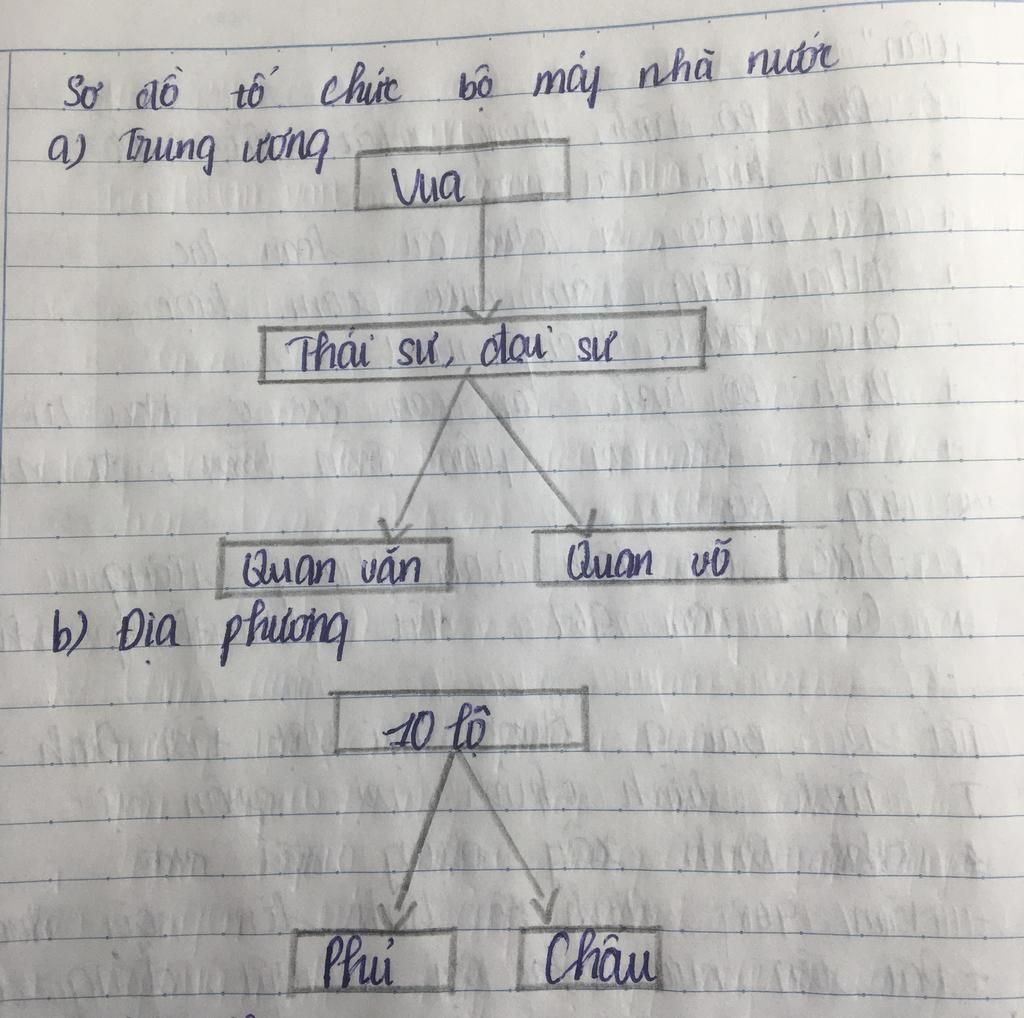 Sơ đồ tổ chức bộ máy nhà nước
a) Trung ương
Vua
Thái sư, đại sư
Quan văn Quan võ
b) Địa phương
10 lộ
Phủ Châu